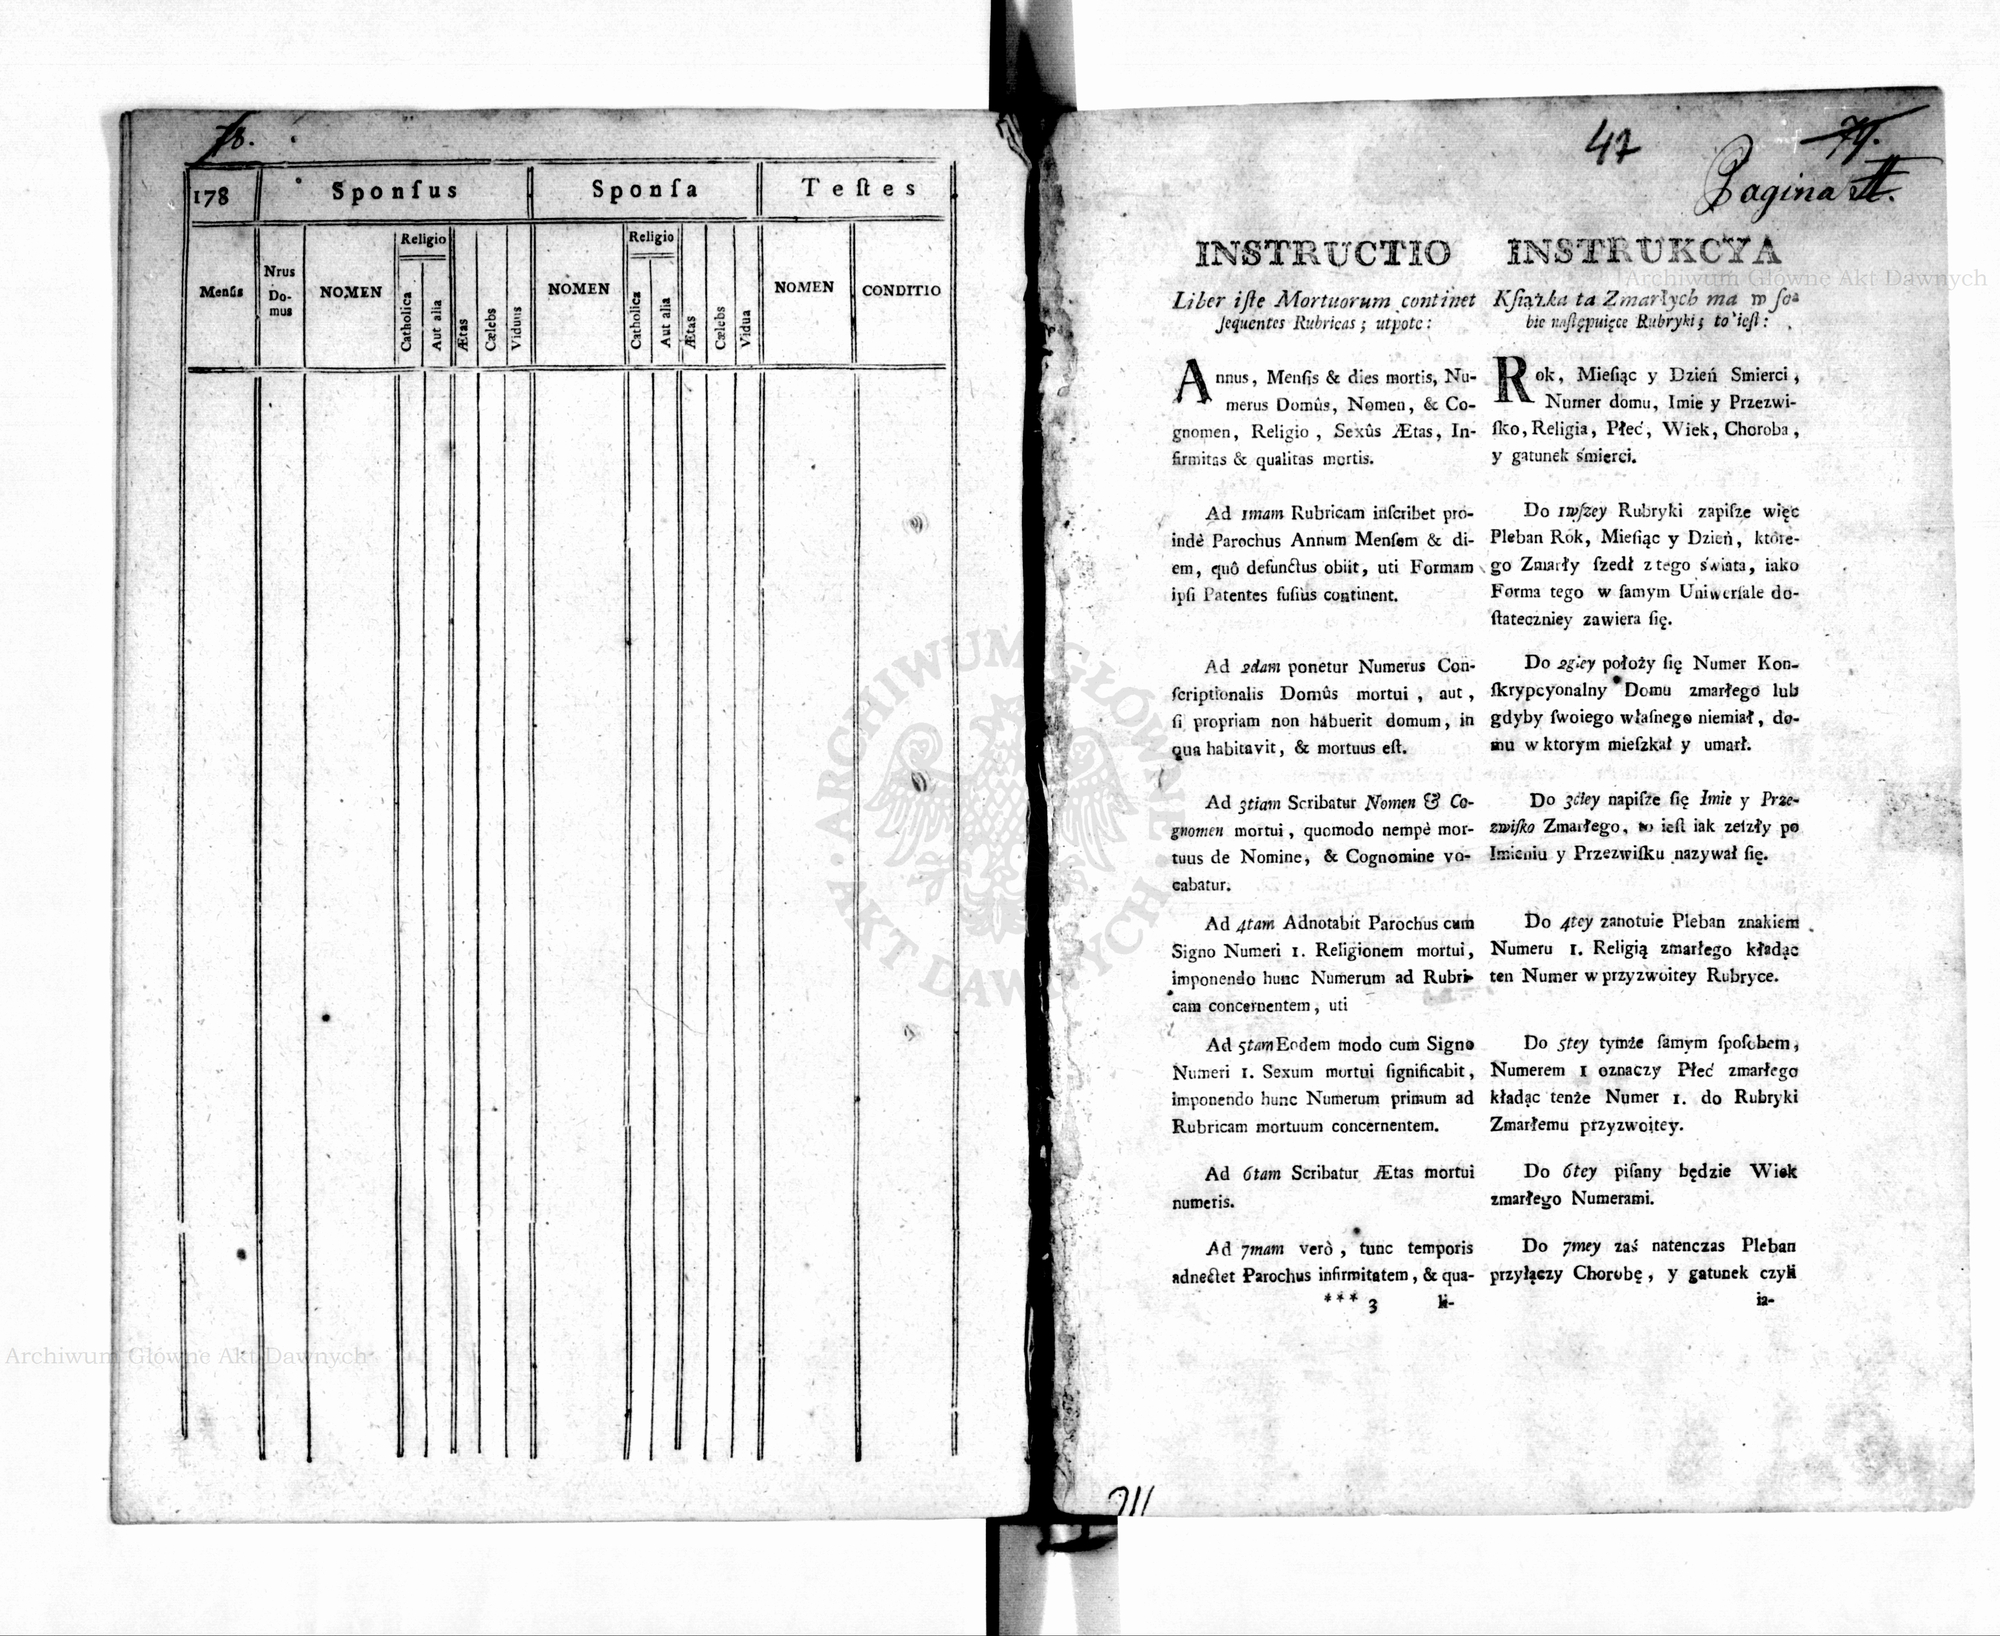 78.
178 Sponſus Sponſa Teſtes
Menſis
Nrus
Do-
mus
NOMEN
Religio
Catholica
Aut alia
Ætas
Cælebs
Viduus
NOMEN
Religio
Catholica
Aut alia
Ætas
Cælebs
Vidua
NOMEN
CONDITIO
47
79.
Pagina
INSTRUCTIO
Liber iſte Mortuorum continet
ſequentes Rubricas; utpote:
Annus, Menſis & dies mortis, Nu-
merus Domûs, Nomen, & Co-
gnomen, Religio, Sexûs Ætas, In-
firmitas & qualitas mortis.
Ad 1mam Rubricam inſcribet pro-
indè Parochus Annum Menſem & di-
em, quô defunctus obiit, uti Formam
ipſi Patentes fuſiùs continent.
Ad 2dam ponetur Numerus Con-
ſcriptionalis Domûs mortui, aut,
ſi propriam non habuerit domum, in
qua habitavit, & mortuus eſt.
Ad 3tiam Scribatur Nomen & Co-
gnomen mortui, quomodo nempè mor-
tuus de Nomine, & Cognomine vo-
cabatur.
Ad 4tam Adnotabit Parochus cum
Signo Numeri 1. Religionem mortui,
imponendo hunc Numerum ad Rubri-
cam concernentem, uti
Ad 5tam Eodem modo cum Signo
Numeri 1. Sexum mortui ſignificabit,
imponendo hunc Numerum primum ad
Rubricam mortuum concernentem.
Ad 6tam Scribatur Ætas mortui
numeris.
Ad 7mam verò, tunc temporis
adnectet Parochus infirmitatem, & qua-
*** 3 li-
INSTRUKCYA
Kſiążka ta Zmarłych ma w ſo-
bie naſtępuięce Rubryki; to ieſt:
Rok, Mieſiąc y Dzień Smierci,
Numer domu, Imie y Przezwi-
ſko, Religia, Płeć, Wiek, Choroba,
y gatunek śmierci.
Do 1wſzey Rubryki zapiſze więc
Pleban Rok, Mieſiąc y Dzień, które-
go Zmarły ſzedł z tego świata, iako
Forma tego w ſamym Uniwerſale do-
ſtateczniey zawiera ſię.
Do 2giey położy ſię Numer Kon-
ſkrypcyonalny Domu zmarłego lub
gdyby ſwoiego właſnego niemiał, do-
mu w ktorym mieſzkał y umarł.
Do 3ciey napiſze ſię Imie y Prze-
zwiſko Zmarłego, to ieſt iak zeſzły po
Imieniu y Przezwiſku nazywał ſię.
Do 4tey zanotuie Pleban znakiem
Numeru 1. Religią zmarłego kładąc
ten Numer w przyzwoitey Rubryce.
Do 5tey tymże ſamym ſpoſobem,
Numerem 1 oznaczy Płeć zmarłego
kładąc tenże Numer 1. do Rubryki
Zmarłemu przyzwoitey.
Do 6tey piſany będzie Wiek
zmarłego Numerami.
Do 7mey zaś natenczas Pleban
przyłączy Chorobę, y gatunek czyli
ia-
Archiwum Główne Akt Dawnych
Archiwum Główne Akt Dawnych
ARCHIWUM GŁÓWNE · AKT DAWNYCH ·